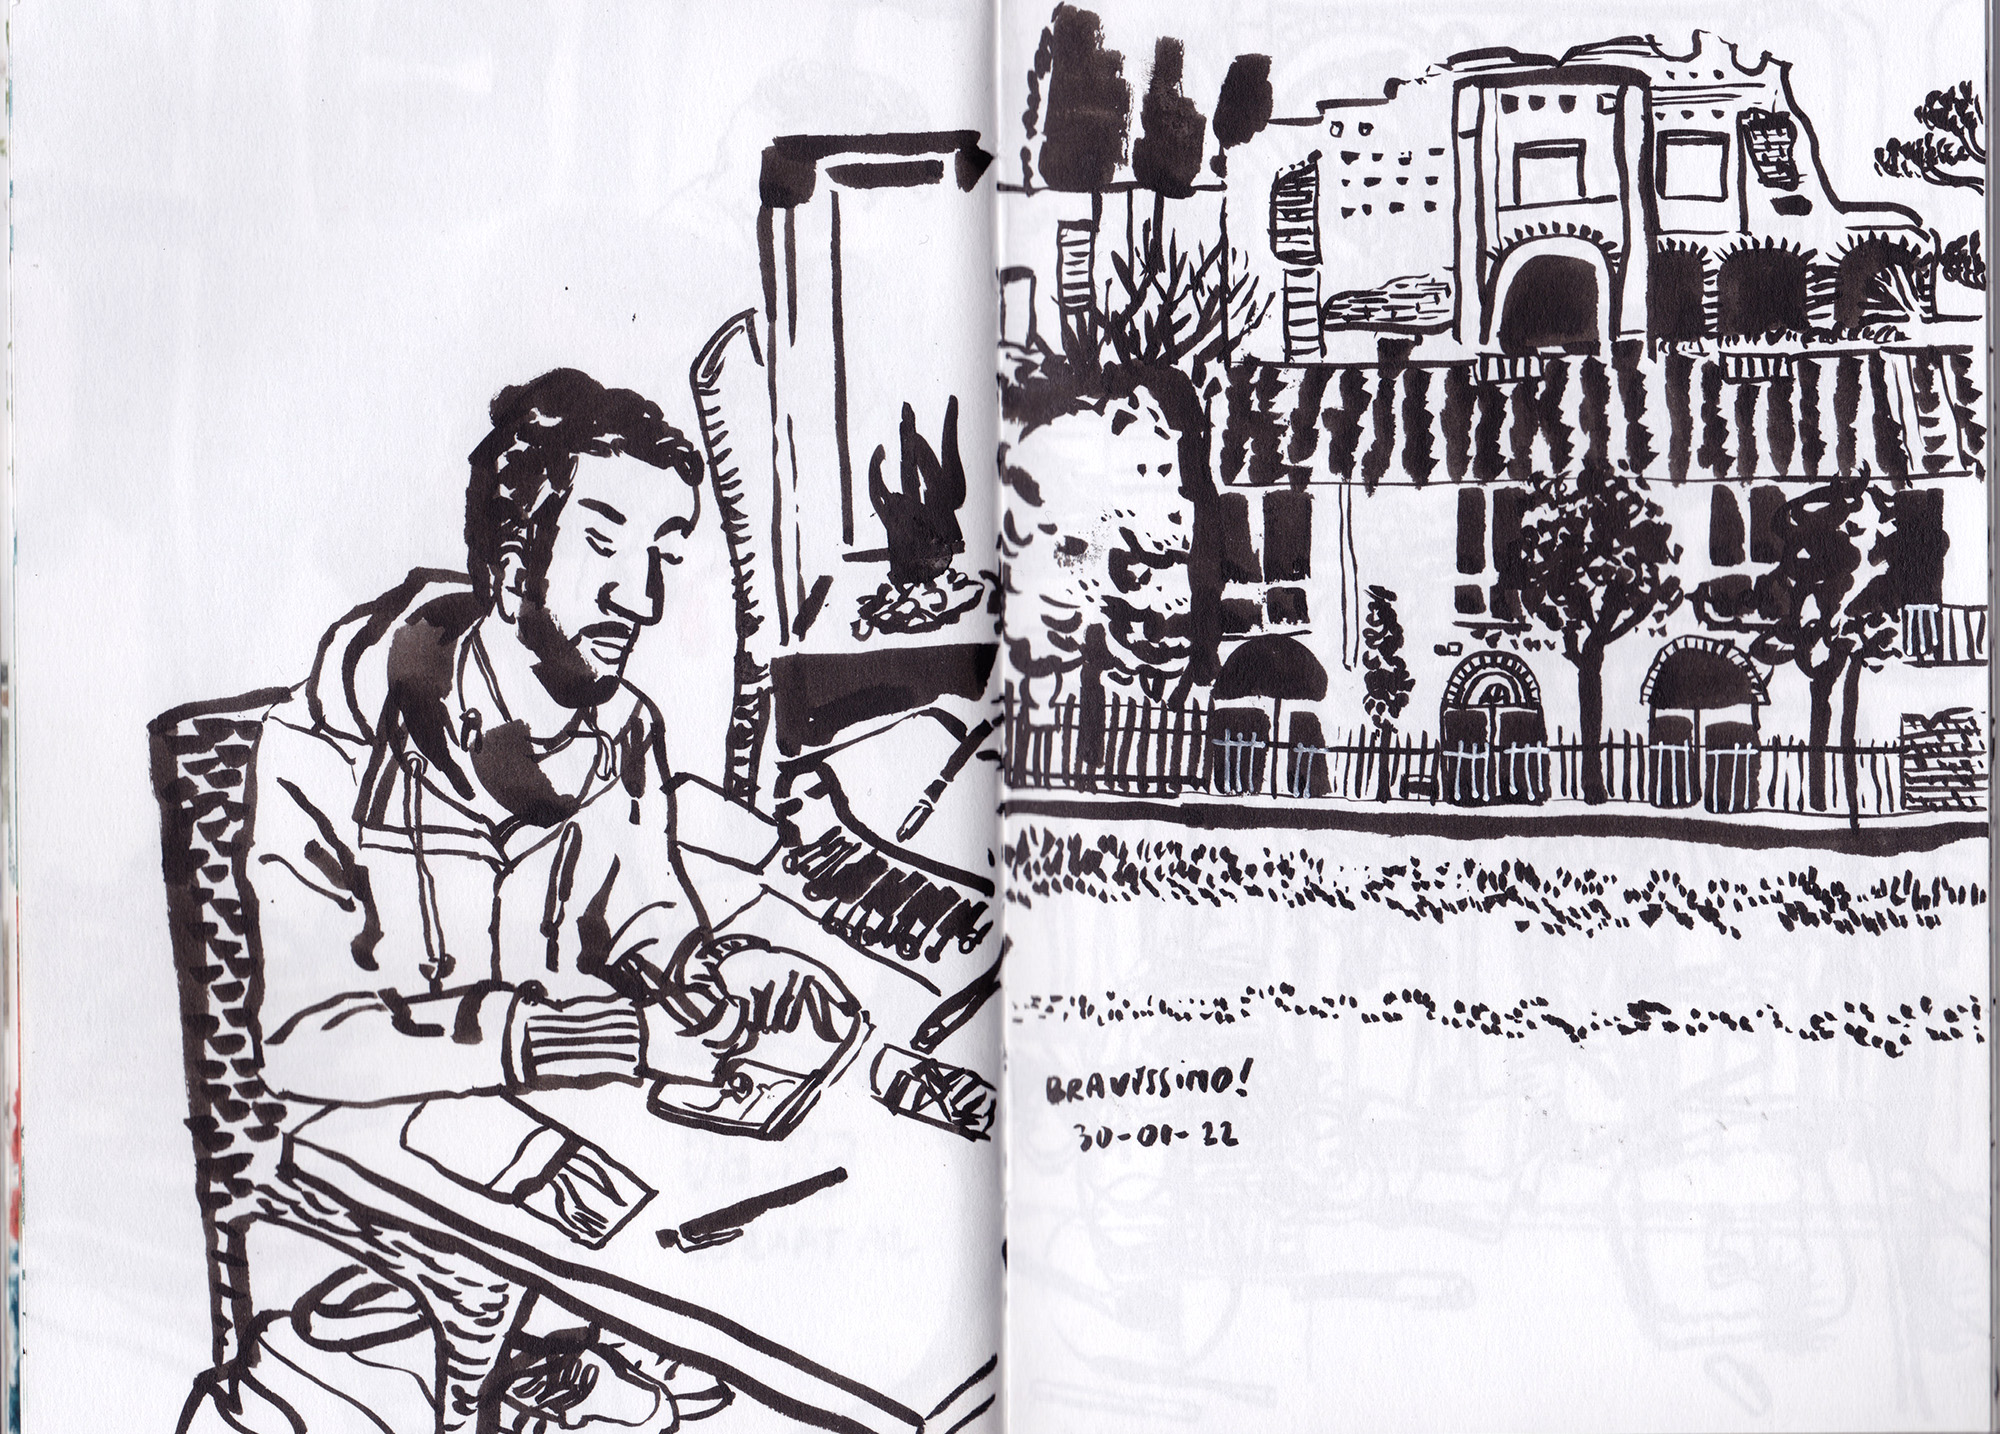 BRAVISSIMO!
30-01-22